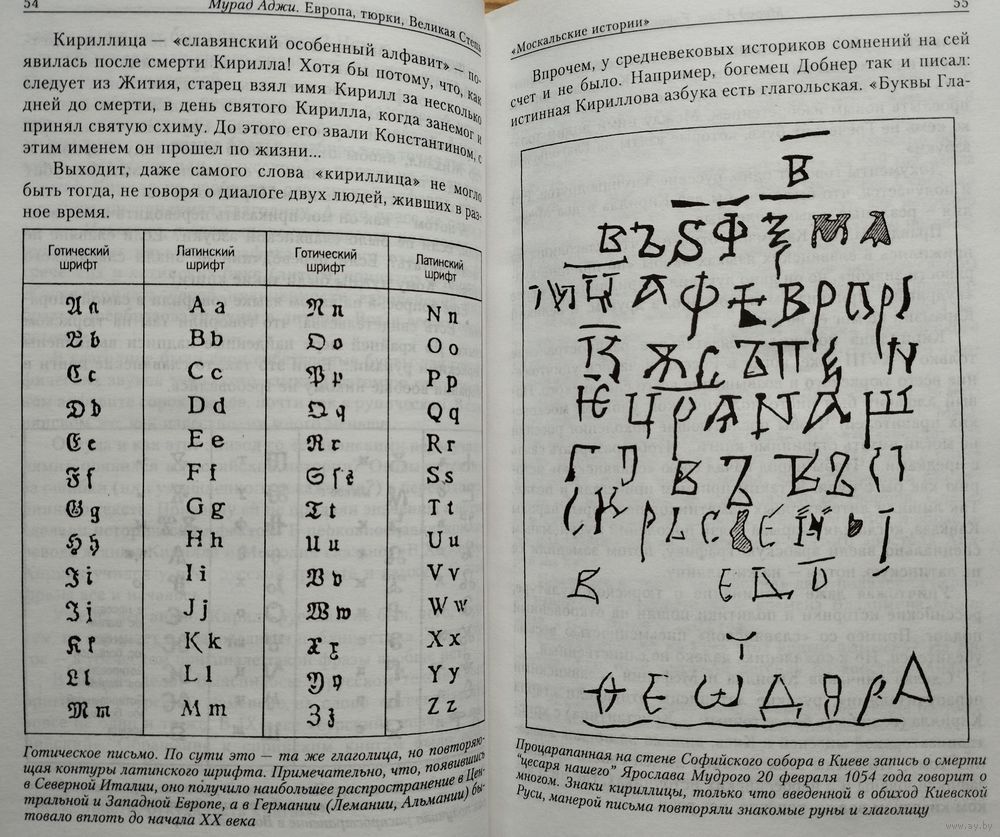 54 Мурад Аджи. Европа, тюрки, Великая Степь
Кириллица — «славянский особенный алфавит» — по-
явилась после смерти Кирилла! Хотя бы потому, что, как
следует из Жития, старец взял имя Кирилл за несколько
дней до смерти, в день святого Кирилла, когда занемог и
принял святую схиму. До этого его звали Константином, с
этим именем он прошел по жизни...
Выходит, даже самого слова «кириллица» не могло
быть тогда, не говоря о диалоге двух людей, живших в раз-
ное время.
Готический шрифт Латинский шрифт Готический шрифт Латинский шрифт
𝔄 𝔞 A a 𝔑 𝔫 N n
𝔅 𝔟 B b 𝔒 𝔬 O o
ℭ 𝔠 C c 𝔓 𝔭 P p
𝔇 𝔡 D d 𝔔 𝔮 Q q
𝔈 𝔢 E e ℜ 𝔯 R r
𝔉 𝔣 F f 𝔖 ſ 𝔰 S s
𝔊 𝔤 G g 𝔗 𝔱 T t
ℌ 𝔥 H h 𝔘 𝔲 U u
ℑ 𝔦 I i 𝔙 𝔳 V v
𝔍 𝔧 J j 𝔚 𝔴 W w
𝔎 𝔨 K k 𝔛 𝔵 X x
𝔏 𝔩 L l 𝔜 𝔶 Y y
𝔐 𝔪 M m ℨ 𝔷 Z z
Готическое письмо. По сути это — та же глаголица, но повторяю-
щая контуры латинского шрифта. Примечательно, что, появившись
в Северной Италии, оно получило наибольшее распространение в Цен-
тральной и Западной Европе, а в Германии (Лемании, Альмании) бы-
товало вплоть до начала XX века
«Москальские истории» 55
Впрочем, у средневековых историков сомнений на сей
счет и не было. Например, богемец Добнер так и писал:
истинная Кириллова азбука есть глагольская. «Буквы Гла-
В
ВЪ Ѕ Ф Ѯ МА
Процарапанная на стене Софийского собора в Киеве запись о смерти
"цесаря нашего" Ярослава Мудрого 20 февраля 1054 года говорит о
многом. Знаки кириллицы, только что введенной в обиход Киевской
Руси, манерой письма повторяли знакомые руны и глаголицу
www.ay.by